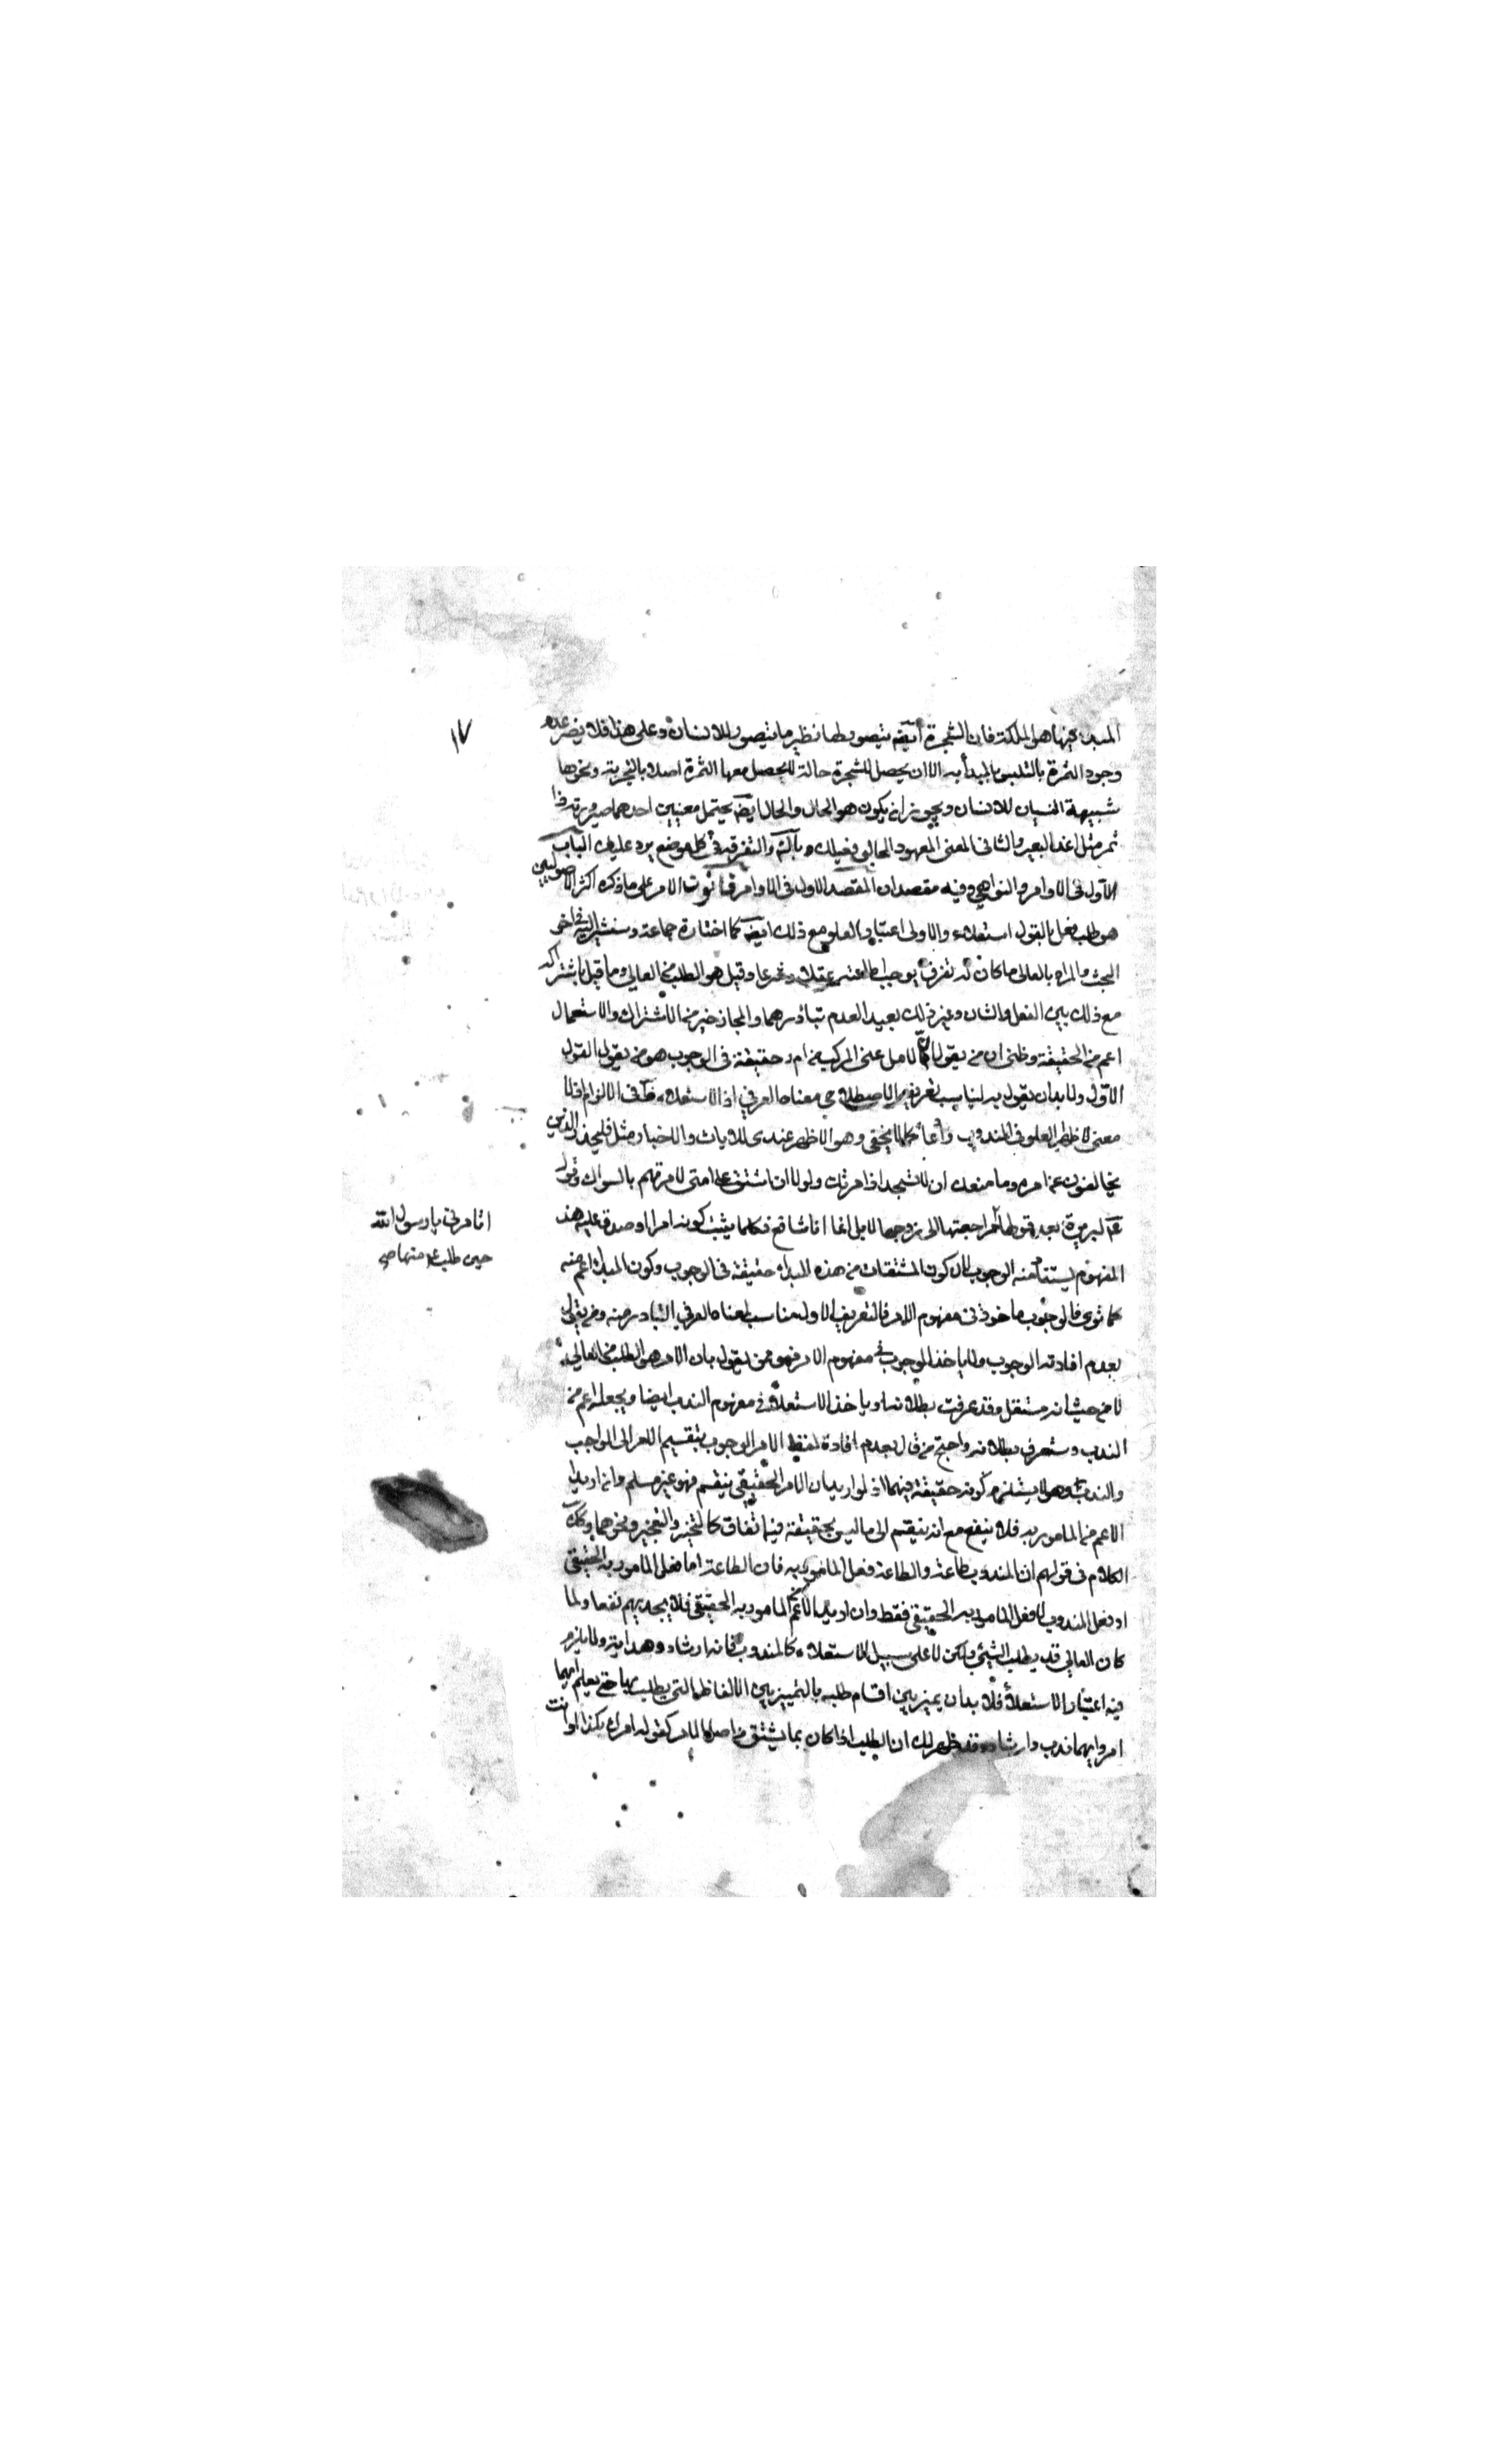 ١٧
المبدء فيها هو الملكة فان الشجرة ايضا يتصور لها نظير ما يتصور للانسان وعلى هذا فلا يضر عدم
وجود الثمرة بالتلبس بالمبدأ به الا ان يحصل للشجرة حالة لا يحصل معها الثمرة اصلا بالتجربة ونحوها
شبيهة النسيان للانسان ويجوز ان يكون هو الحال والحال ايضا يحتمل معنيين احدهما صيرورته ذا
ثمر مثل اغد البعير والثاني المعنى المعهود الحالى فعليك بالتأمل والتفرقة في كل موضع يرد عليك الباب
الاول فى الاوامر والنواهي وفيه مقصدان المقصد الاول فى الاوامر قانون الامر على ما ذكره اكثر الاصوليين
هو طلب فعل بالقول استعلاء والاولى اعتبار العلو مع ذلك ايضا كما اختاره جماعة وسنشير اليه في اخر
البحث والمراد بالعالى من كان له تفوق يوجب اطاعته عقلا وشرعا وقيل هو الطلب من العالي وما قيل باشتراكه
مع ذلك بين الفعل والشان وغير ذلك بعيد لعدم تبادرهما والمجاز خير من الاشتراك والاستعمال
اعم من الحقيقة وظنى ان من يقول بان الامر اعنى المركب من ام ر حقيقة فى الوجوب هو من يقول القول
الاول ولا بد ان يقول به ليناسب تعريفه الاصطلاحى معناه العرفي اذ الاستعلاء ظاهر فى الالزام اذ لا
معنى لاظهار العلو في المندوب وادعائه كما لا يخفى وهو الاظهر عندى للايات والاخبار مثل فليحذر الذين
يخالفون عن امره وما منعك ان لا تسجد اذ امرتك ولولا ان اشق على امتى لامرتهم بالسواك وقوله
لبريرة بعد قولها اتأمرني يا رسول الله حين طلب منها مراجعتها الى زوجها لا بل انما انا شافع فكلما يثبت كونه امرا وصدق عليه هذا
المفهوم يستفاد منه الوجوب لان كون المشتقات من هذه المبدء حقيقة فى الوجوب وكون المبدء اعم منه
كما ترى فالوجوب ماخوذ فى مفهوم الامر فالتعريف الاول مناسب لمعناه العرفي المتبادر منه ومن يقول
بعدم افادته الوجوب ولا ياخذ الوجوب في مفهوم الامر فهو ممن يقول بان الامر هو الطلب من العالي
لا من حيث انه مستعل وقد عرفت بطلانه او ياخذ الاستعلاء في مفهوم الندب ايضا ويجعله اعم من
الندب وستعرف بطلانه واحتج من قال بعدم افادة لفظ الامر الوجوب بتقسيم الامر الى الواجب
والندب وهو لا يستلزم كونه حقيقة فيهما اذ لو اريد ان الامر الحقيقى ينقسم فهو غير مسلم وان اريد
الاعم من المامور به فلا ينفع مع انه ينقسم الى ما ليس بحقيقة فيه اتفاقا كالتخيير والتعجيز ونحوهما وكك
الكلام فى قولهم ان المندوب طاعة والطاعة فعل المامور به فان الطاعة اما فعل المامور به الحقيقى
او فعل المندوب لا فعل المامور به الحقيقى فقط وان اريد الاعم من المامور به الحقيقى فلا يجديهم نفعا ولما
كان العالي قد يطلب الشيئ ولكن لا على سبيل الاستعلاء كالمندوب فانه ارشاد وهداية ولا يلزم
فيه اعتبار الاستعلاء فلا بد ان يميز بين اقسام طلبه بالتمييز بين الالفاظ التى يطلب بها حتى يعلم ايها
امر وايهما ندب وارشاد وقد ظهر لك ان الطلب اذا كان بما يشتق من اصل الامر كقوله امرك بكذا او انت
اتامرنى يا رسول الله
حين طلب منها صح